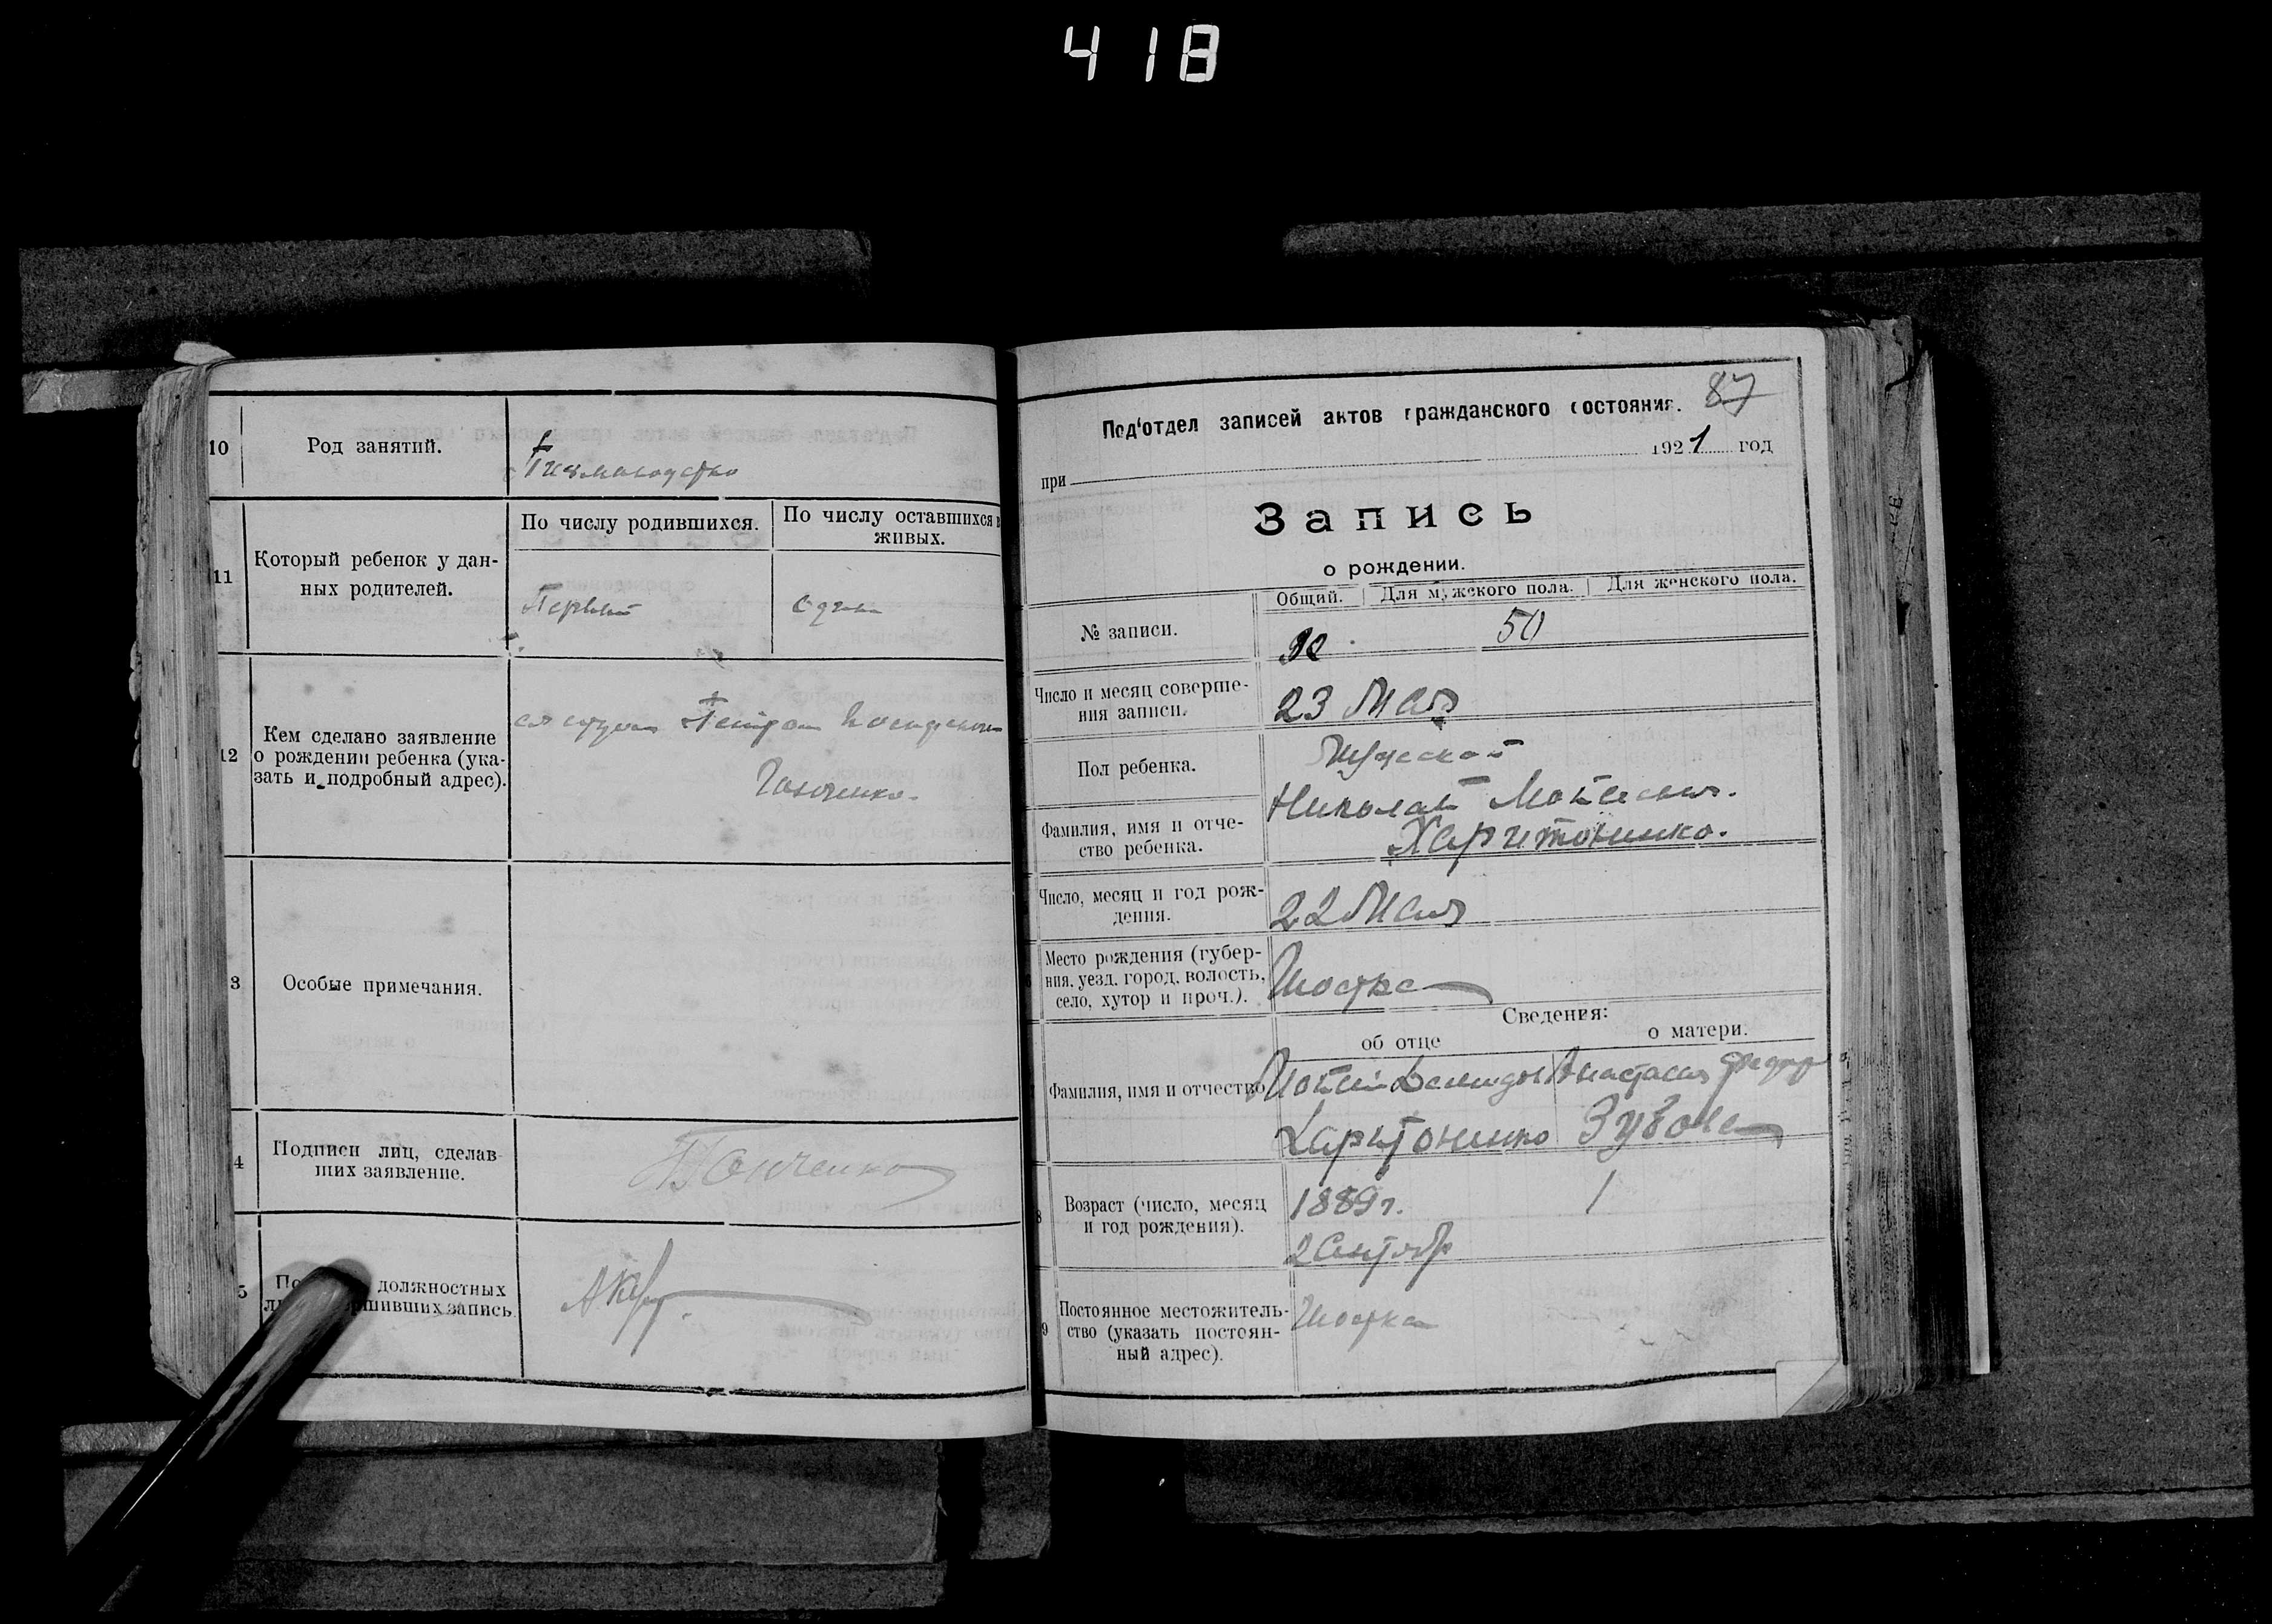 418
10 Род занятий.
11 Который ребенок у дан-
ных родителей.
По числу родившихся.
По числу оставшихся в
живых.
Первый
один
12 Кем сделано заявление
о рождении ребенка (ука-
зать и подробный адрес).
Гонченко.
3 Особые примечания.
4 Подписи лиц, сделав-
ших заявление.
Гонченко
5 должностных
запись.
87
Под'отдел записей актов гражданского состояния.
1921 год
при
Запись
о рождении.
Общий. Для мужского пола. Для женского пола.
№ записи.
50
Число и месяц соверше-
ния записи.
23 Мая
Пол ребенка.
Мужской
Фамилия, имя и отче-
ство ребенка.
Николай
Харитоненко.
Число, месяц и год рож-
дения.
22 Мая
Место рождения (губер-
ния, уезд, город, волость,
село, хутор и проч.).
Шостка
Сведения:
об отце
о матери.
Фамилия, имя и отчество
Анастасия
Харитоненко Зубова
8 Возраст (число, месяц
и год рождения).
1889 г.
2 Сентябр
9 Постоянное местожитель-
ство (указать постоян-
ный адрес).
Шостка